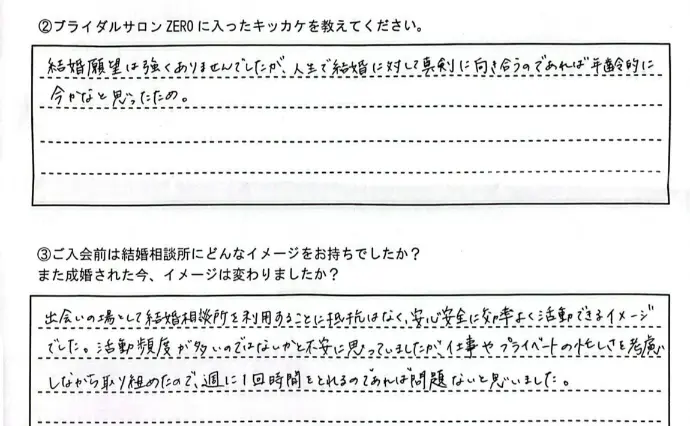 ②ブライダルサロン ZERO に入ったキッカケを教えてください。
結婚願望は強くありませんでしたが、人生で結婚に対して真剣に向き合うのであれば年齢的に
今かなと思ったため。
③ご入会前は結婚相談所にどんなイメージをお持ちでしたか？
また成婚された今、イメージは変わりましたか？
出会いの場として結婚相談所を利用することに抵抗はなく、安心安全に効率よく活動できるイメージ
でした。活動頻度が多いのではないかと不安に思っていましたが、仕事やプライベートの忙しさを考慮
しながら取り組めたので、週に1回時間をとれるのであれば問題ないと思いました。